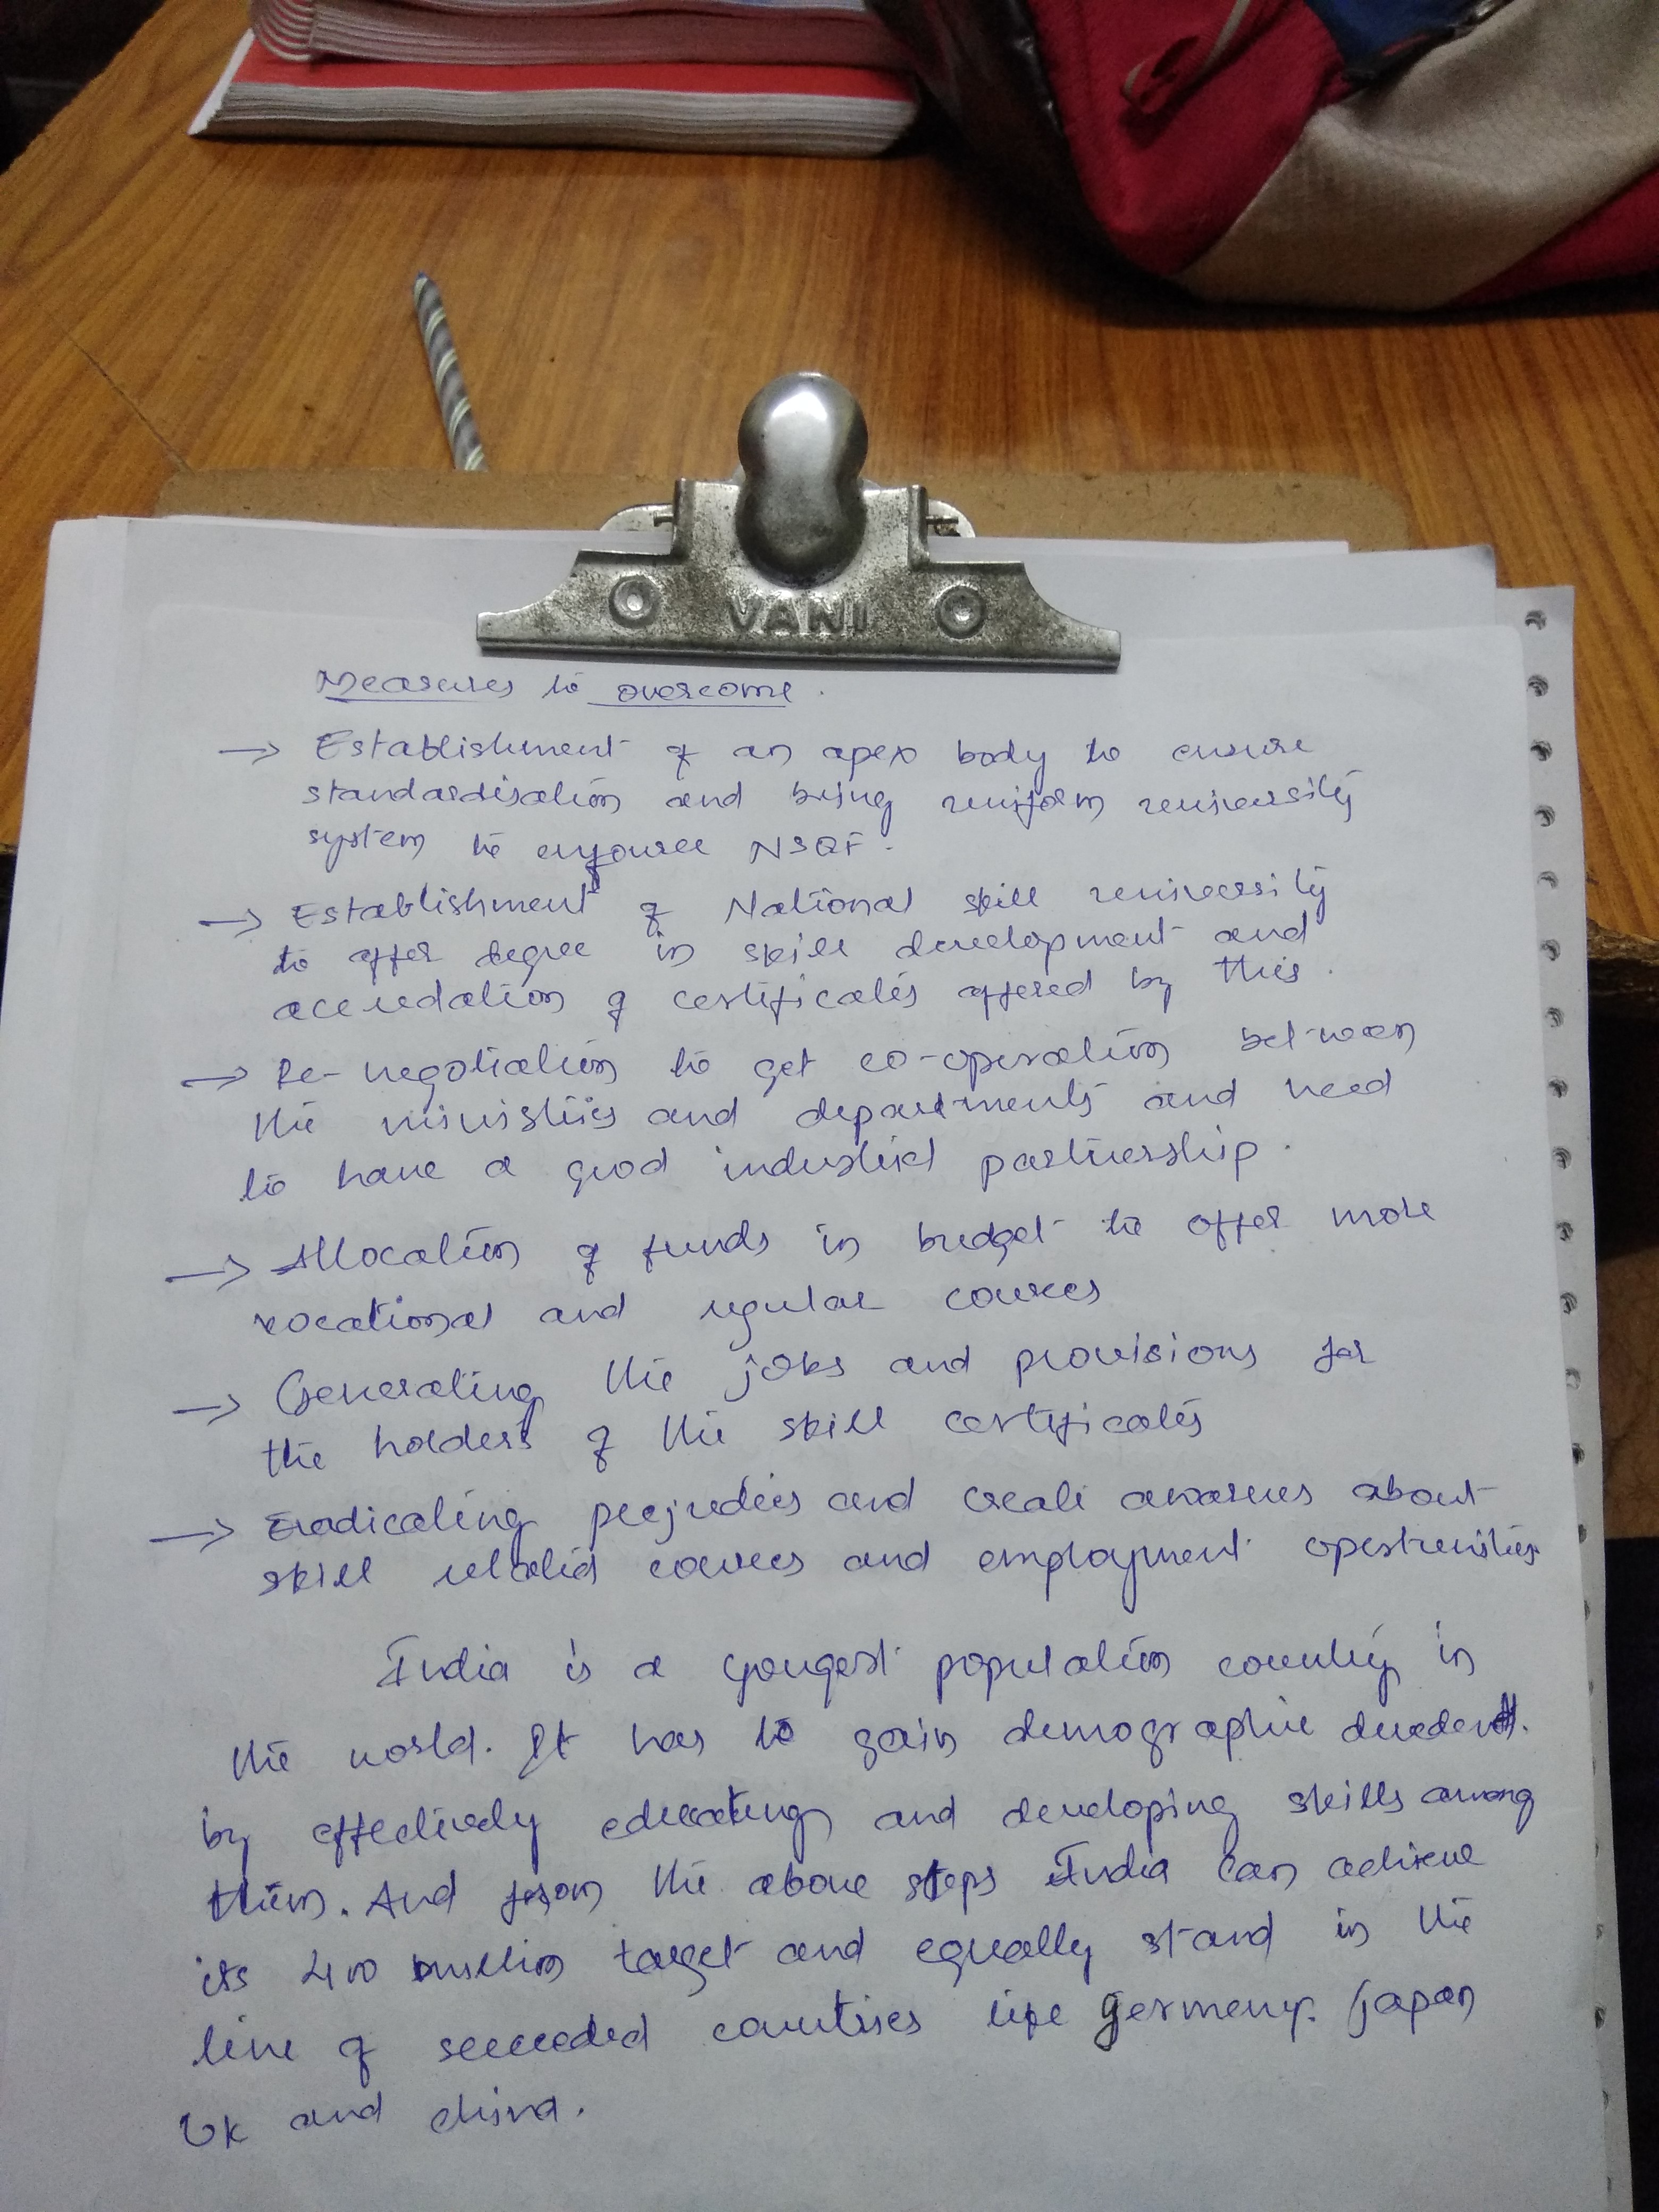 VANI
Measures to overcome.
→ Establishment of an apex body to ensure
standardisation and bring uniform university
system to enforce NSQF.
→ Establishment of National skill university
to offer degree in skill development and
of certificates offered by this.
→ Re-negotiation to get co-operation between
the ministries and departments and need
to have a good industrial partnership.
→ Allocation of funds in budget to offer more
vocational and regular courses
→ Generating the jobs and provisions for
the holders of the skill certificates
→ Eradicating prejudies and create awarenes about
skill related courses and employment
India is a yougest population country in
the world. It has to gain demographic
by effectively educating and developing skills among
them. And from the above steps India can achieve
its 400 million target and equally stand in the
line of succeeded countries like Germeny. Japan
UK and china.